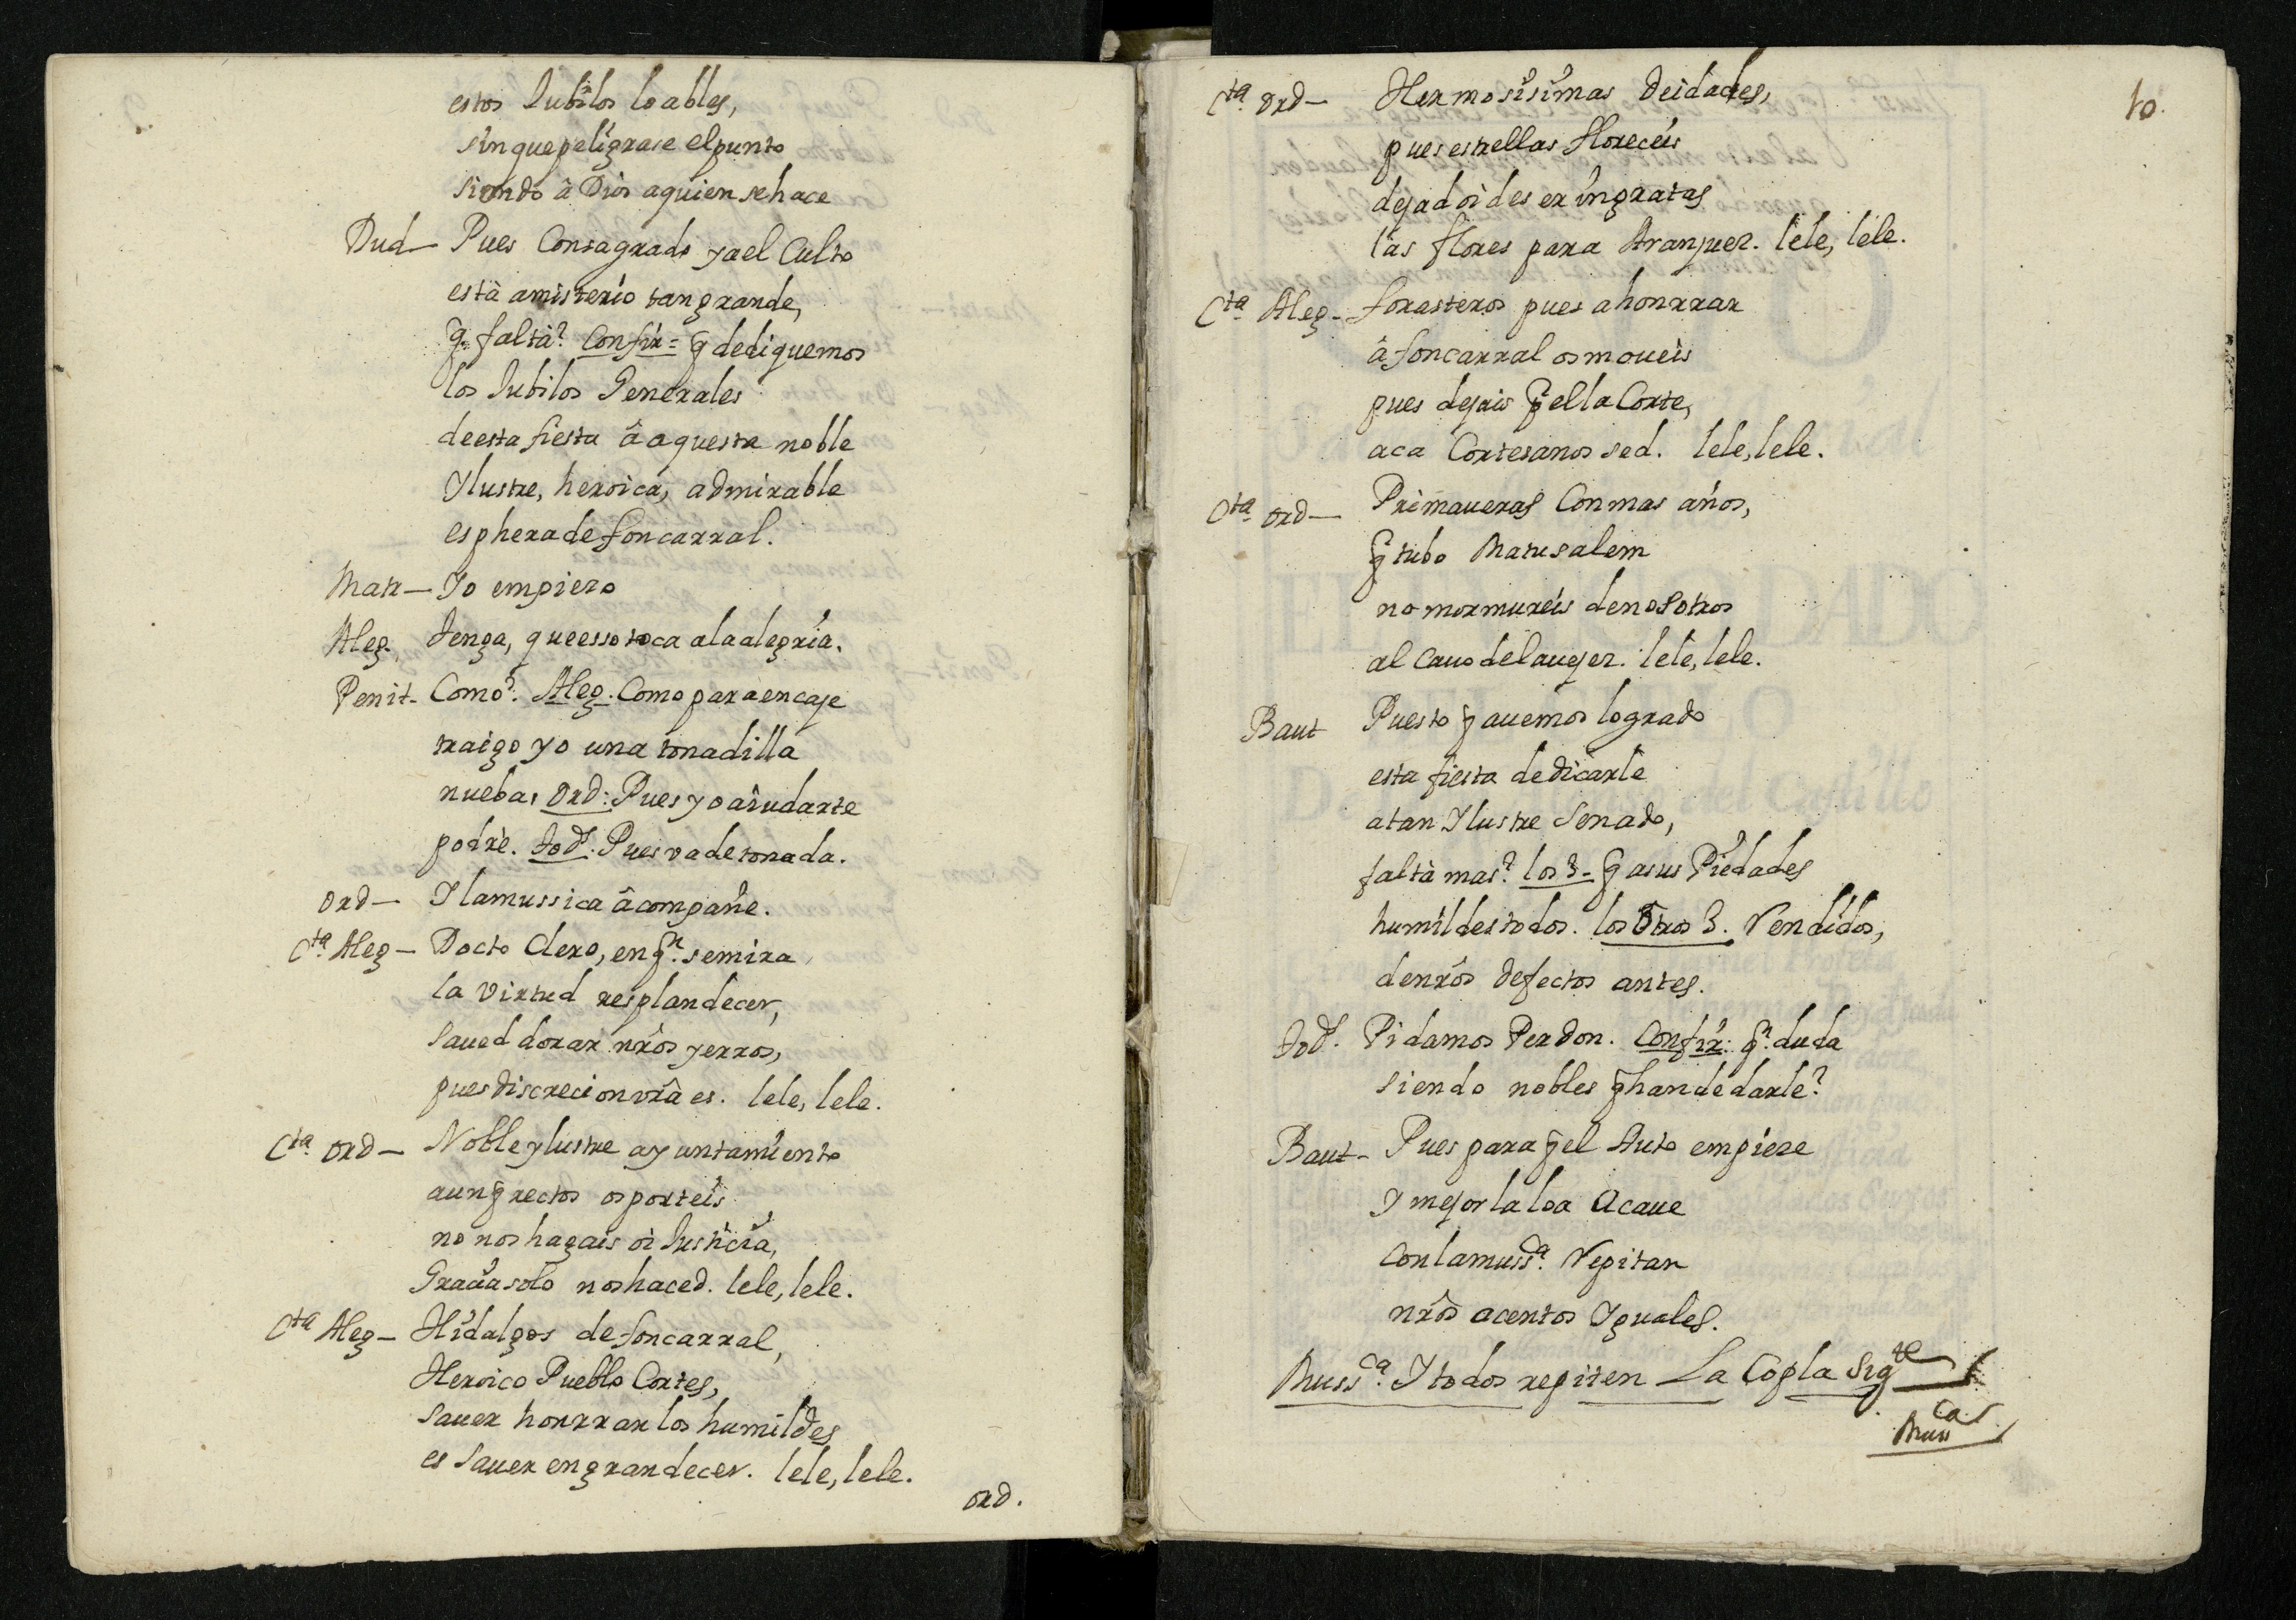 estos Jubilos loables,
sin que peligrase el punto
siendo â Dios a quien se hace
Dud— Pues Consagrado ya el Culto
està a misterio tan grande,
q̃ falta? Confir= q̃ dediquemos
los Jubilos Generales
de esta fiesta â aquesta noble
Ylustre, heroica, admirable
esphera de foncarral.
Matr— Yo empiezo
Aleg. Tenga, que esso toca a la alegria.
Penit- Como? Aleg. Como para encaje
traigo yo una tonadilla
nueba, Ord: Pues yo aiudarte
podrè. Tods. Pues va de tonada.
Ord— Y la mussica âcompañe.
Cta. Aleg— Docto Clero, en qn. se mira
la virtud resplandecer,
saued dorar nrôs yerros,
pues discrecion vrâ es. lele, lele.
Cta. Ord— Noble ylustre ayuntamiento
aunq̃ rectos os porteis
no nos hagais oi Justicia,
Gracia solo nos haced. lele, lele.
Cta Aleg— Hidalgos de foncarral,
Heroico Pueblo Cortes,
sauer honrrar los humildes
es sauer engrandecer. lele, lele.
Ord.
10.
Cta. Ord— Hermosisimas Deidades,
pues estrellas floreceis
dejad oi de ser ingratas
las flores para Aranjuez. lele, lele.
Cta Aleg- forasteros pues a honrrar
â foncarral os moueis
pues dejais p̃ ella Corte,
aca Cortesanos sed. lele, lele.
Cta Ord— Primaueras Con mas años,
q̃ tubo Matusalem
no mormureis de nosotros
al Cauo de la uejez. lele, lele.
Baut Puesto q̃ auemos logrado
esta fiesta dedicarle
a tan Ylustre Senado,
falta mas? los 3- q̃ a sus Piedades
humildes todos. los Otros 3. Rendidos,
de nrôs defectos antes.
Tods. Pidamos Perdon. Confir: qn. duda
siendo nobles q̃ han de darle?
Baut- Pues para q̃ el Auto empieze
Y mejor la loa Acaue
Con la mussca. Repitan
nrôs acentos Yguales.
Mussca. Y todos repiten La Copla Sigte
Mussca.